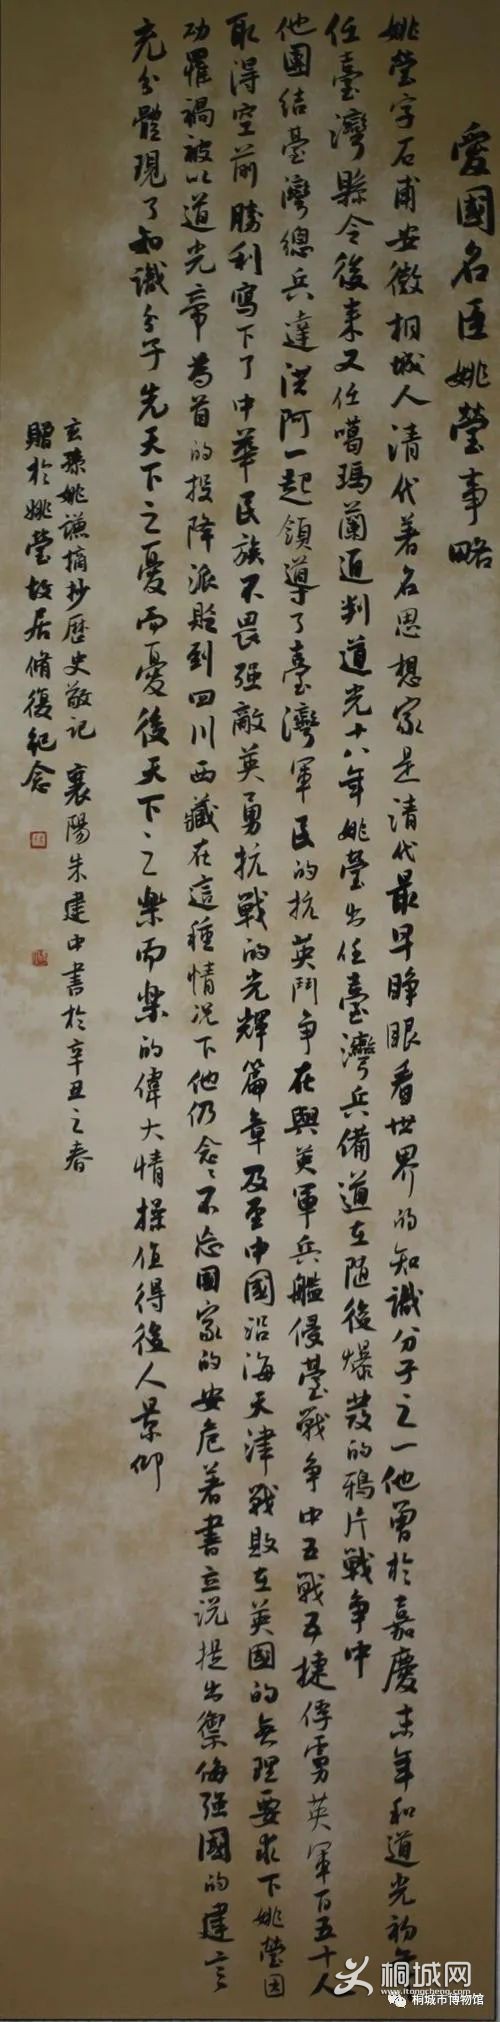 愛國名臣姚瑩事略
姚瑩字石甫安徽桐城人清代著名思想家是清代最早睁眼看世界的知識分子之一他曾於嘉慶末年和道光初年
任臺灣縣令後来又任噶瑪蘭通判道光十八年姚瑩出任臺灣兵備道在随後爆發的鴉片戰争中
他團结臺灣總兵達洪阿一起領導了臺灣軍民的抗英鬥争在與英軍兵艦侵臺戰争中五戰五捷俘虜英軍百五十人
取得空前勝利寫下了中華民族不畏强敵英勇抗戰的光輝篇章及至中國沿海天津戰敗在英國的無理要求下姚瑩因
功罹禍被以道光帝為首的投降派貶到四川西藏在這種情况下他仍念々不忘國家的安危著書立说提出禦侮强國的建言
充分體現了知識分子先天下之憂而憂後天下之樂而樂的偉大情操值得後人景仰
玄孫姚謙摘抄歷史敬记 襄陽朱建中書於辛丑之春
贈於姚瑩故居脩復紀念
桐城网
itongcheng.com
桐城市博物馆